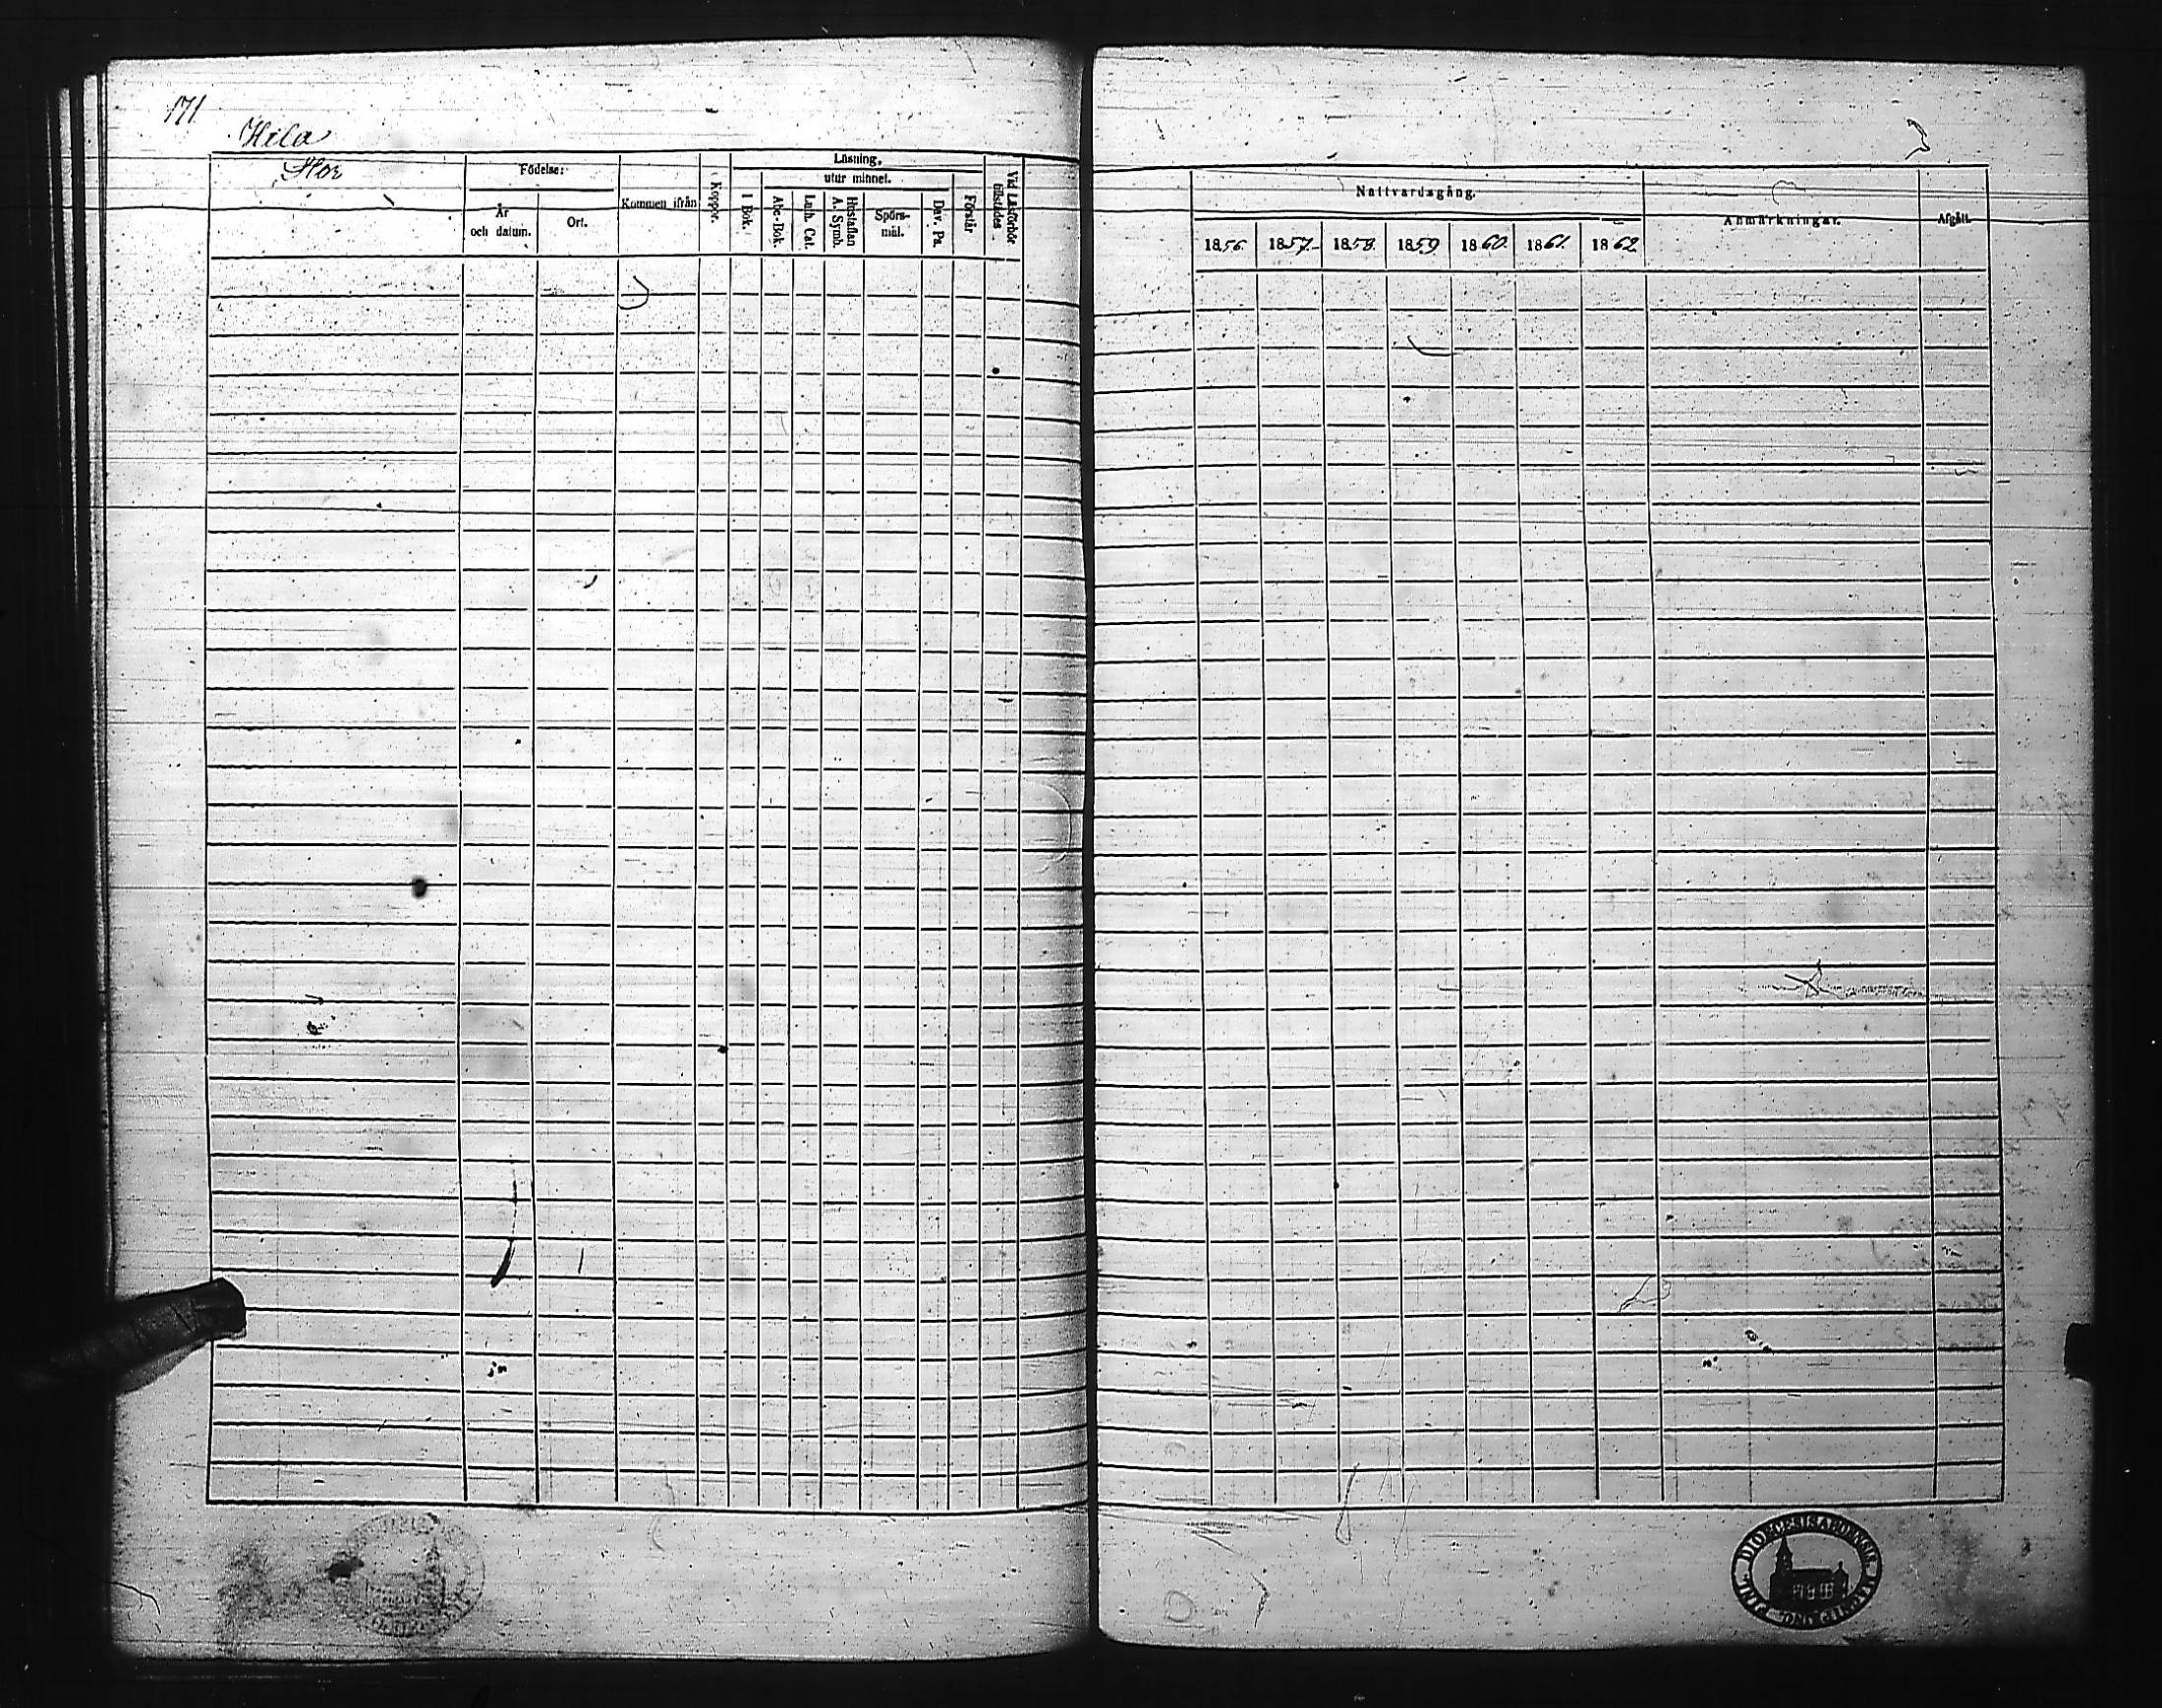 171
Hila
Stor
Födelse:
År
och datum.
Ort.
Kommen ifrån
Koppor.
Läsning,
utur minnet.
I Bok.
Abc-Bok.
Luth. Cat.
Hustaflan
A. Symb.
Spörs-
mål.
Dav. Ps.
Förstår
Vid Läsförhör
tillstädes
Nattvardsgång.
1856. 1857. 1858. 1859 1860. 1861. 1862
Anmärkningar.
Afgått.
DIOECESIS ABOENSIS